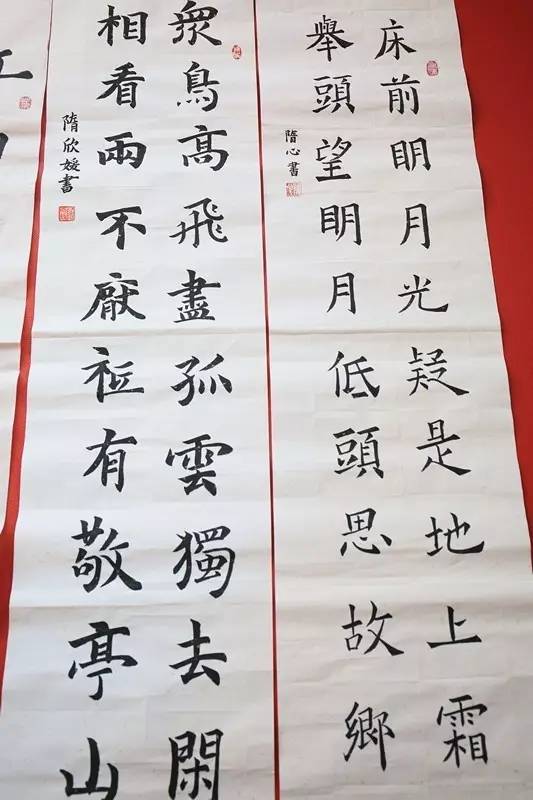 床前明月光疑是地上霜
舉頭望明月低頭思故鄉
隋心書
衆鳥高飛盡孤雲獨去閑
相看兩不厭祗有敬亭山
隋欣媛書